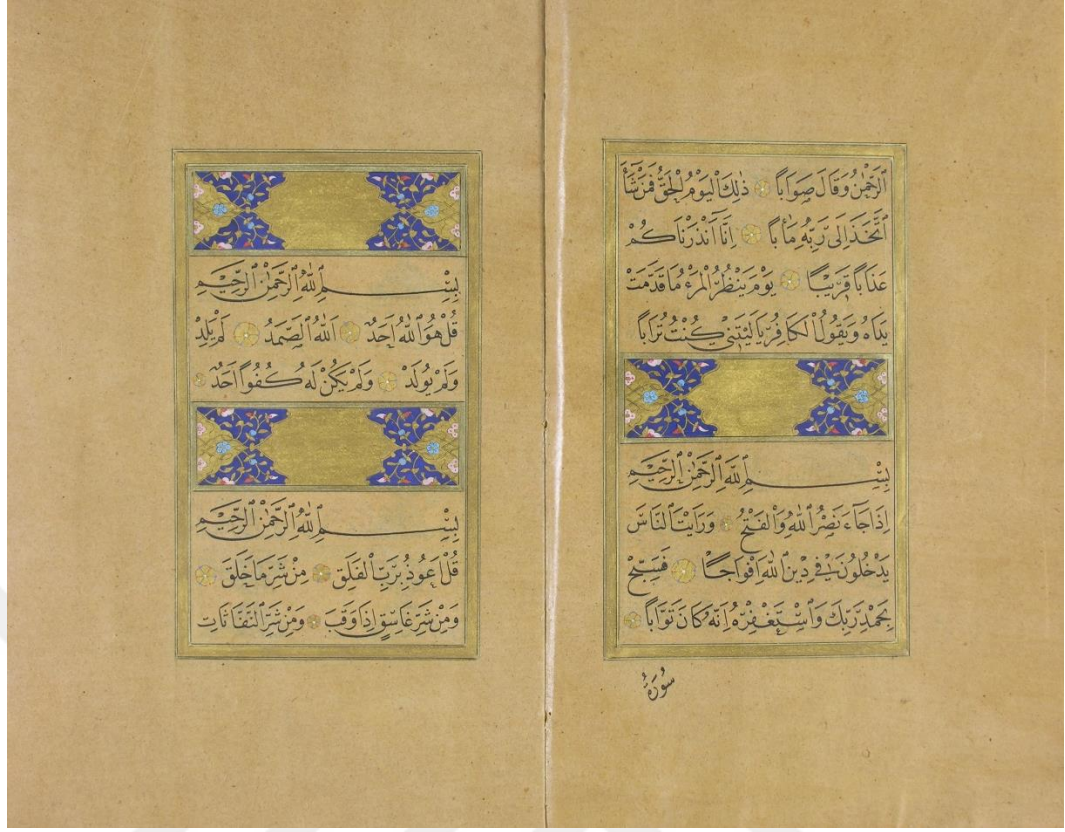 الرَّحْمٰنُ وَقَالَ صَوَابًا ذٰلِكَ الْيَوْمُ الْحَقُّ فَمَنْ شَٓاءَ
اتَّخَذَ اِلٰى رَبِّهٖ مَاٰبًا اِنَّٓا اَنْذَرْنَاكُمْ
عَذَابًا قَرِيبًا يَوْمَ يَنْظُرُ الْمَرْءُ مَا قَدَّمَتْ
يَدَاهُ وَيَقُولُ الْكَافِرُ يَا لَيْتَنِي كُنْتُ تُرَابًا
بِسْمِ اللّٰهِ الرَّحْمٰنِ الرَّحِيمِ
اِذَا جَاءَ نَصْرُ اللّٰهِ وَالْفَتْحُ وَرَاَيْتَ النَّاسَ
يَدْخُلُونَ فِي دِينِ اللّٰهِ اَفْوَاجًا فَسَبِّحْ
بِحَمْدِ رَبِّكَ وَاسْتَغْفِرْهُ اِنَّهُ كَانَ تَوَّابًا
سُورَةُ
بِسْمِ اللّٰهِ الرَّحْمٰنِ الرَّحِيمِ
قُلْ هُوَ اللّٰهُ اَحَدٌ اَللّٰهُ الصَّمَدُ لَمْ يَلِدْ
وَلَمْ يُولَدْ وَلَمْ يَكُنْ لَهُ كُفُوًا اَحَدٌ
بِسْمِ اللّٰهِ الرَّحْمٰنِ الرَّحِيمِ
قُلْ اَعُوذُ بِرَبِّ الْفَلَقِ مِنْ شَرِّ مَا خَلَقَ
وَمِنْ شَرِّ غَاسِقٍ اِذَا وَقَبَ وَمِنْ شَرِّ النَّفَّاثَاتِ